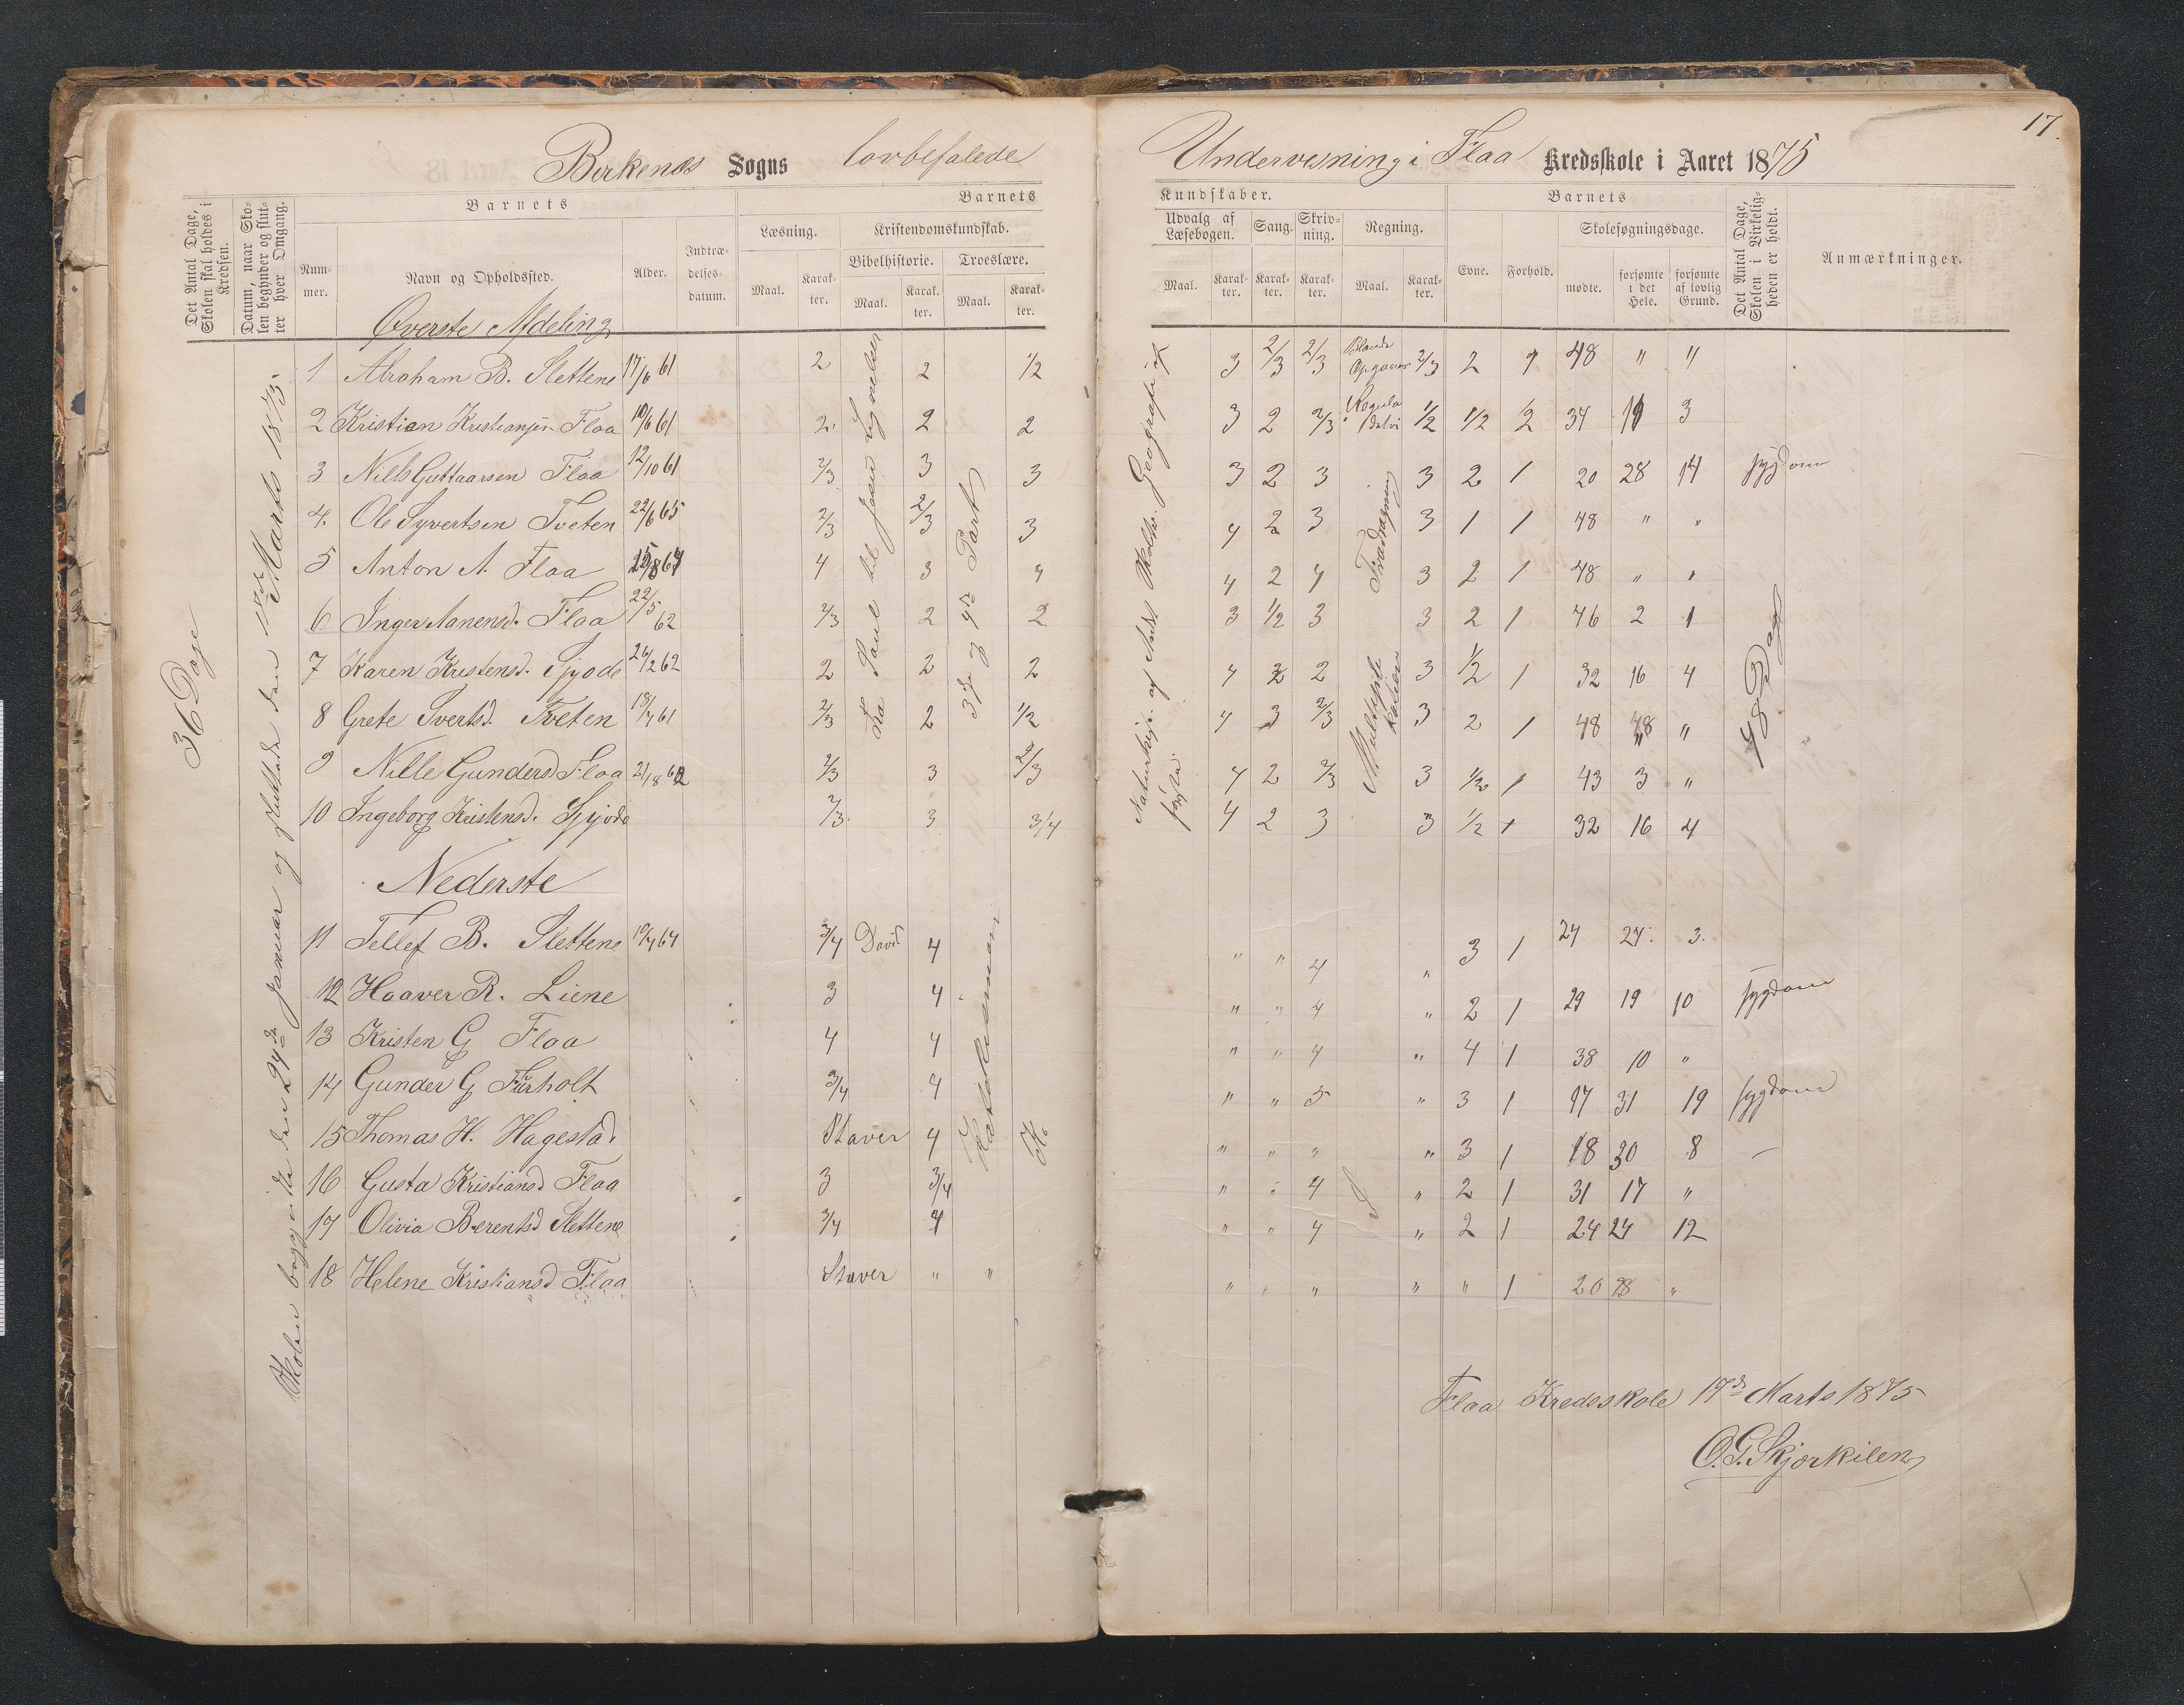 17.
Birkenes Sogns lovbefalede Undervisning i Flaa Kredsskole i Aaret 1875
Det Antal Dage, Skolen skal holdes i Kredsen.
Datum, naar Skolen begynder og slutter hver Omgang.
Barnets
Nummer.
Navn og Opholdssted.
Alder.
Indtrædelsesdatum.
Barnets
Læsning.
Kristendomskundskab.
Bibelhistorie.
Troeslære.
Maal.
Karakter.
Maal.
Karakter.
Maal.
Karakter.
Kundskaber.
Udvalg af Læsebogen.
Sang.
Skrivning.
Regning.
Maal.
Karakter.
Karakter.
Karakter.
Maal.
Karakter.
Barnets
Evne.
Forhold.
Skolesøgningsdage.
mødte.
forsømte i det Hele.
forsømte af lovlig Grund.
Det Antal Dage, Skolen i Virkeligheden er holdt.
Anmærkninger.
36 Dage
Skolen begyndte den 24de Januar og sluttede den Marts 1875.
Øverste Afdeling
Fra Saul til Jesu Lignelser
3die og 4de Part
Geografi
Naturhist.
Blande Opgaver
Regula
Tradragning
Multiplikation
48 Dage
1 Abraham B. Slettene 17/6 61 2 2 1/2 3 2/3 2/3 2/3 2 1 48 " "
2 Kristian Kristiansen Flaa 10/6 61 2 2 2 3 2 2/3 1/2 1/2 1/2 34 3
3 Nils Guttaarsen Flaa 12/10 61 2/3 3 3 3 2 3 3 2 1 20 28 14 sygdom
4. Ole Syvertsen Tveten 22/6 65 2/3 2/3 3 4 2 3 3 1 1 48 " "
5 Anton A. Flaa 4 3 4 4 2 4 3 2 1 48 " "
6 Inger Aanensd. Flaa 22/5 62 2/3 2 2 3 1/2 3 3 2 1 46 2 1
7 Karen Kristensd. 26/2 62 2 2 2 4 2 2 3 1/2 1 32 16 4
8 Grete Sivertsd. Tveten 18/4 61 2/3 2 1/2 4 3 2/3 3 2 1 48 "
9 Nille Gundersd. Flaa 2/3 3 2/3 4 2 2/3 3 1/2 1 43 3 "
10 Ingeborg Kristensd. 2/3 3 3/4 4 2 3 3 1/2 1 32 16 4
Nederste
Katekismen
11 Tellef B. Slettene 10/4 64 3/4 David 4 " " 4 " 3 1 24 24 3.
12 Haaver R. Liene 3 4 " " 4 " 2 1 29 19 10 sygdom
13 Kristen G Flaa 4 4 " " 4 " 4 1 38 10 "
14 Gunder G Furholt 3/4 4 " " 5 " 3 1 17 31 19 sygdom
15 Thomas H. Hagestad Staver 4 " " " " 3 1 18 30 8 —
16 Gusta Kristiansd Flaa 3 3/4 " " 4 " 2 1 31 17 "
17 Olivia Berentsd Slettene 3/4 4 " " 4 " 2 1 24 24 12
18 Helene Kristiansd Flaa Staver " " " " " " " 1 20 28 "
Flaa Kredsskole 17de Marts 1875
O. G. Skjerkilen